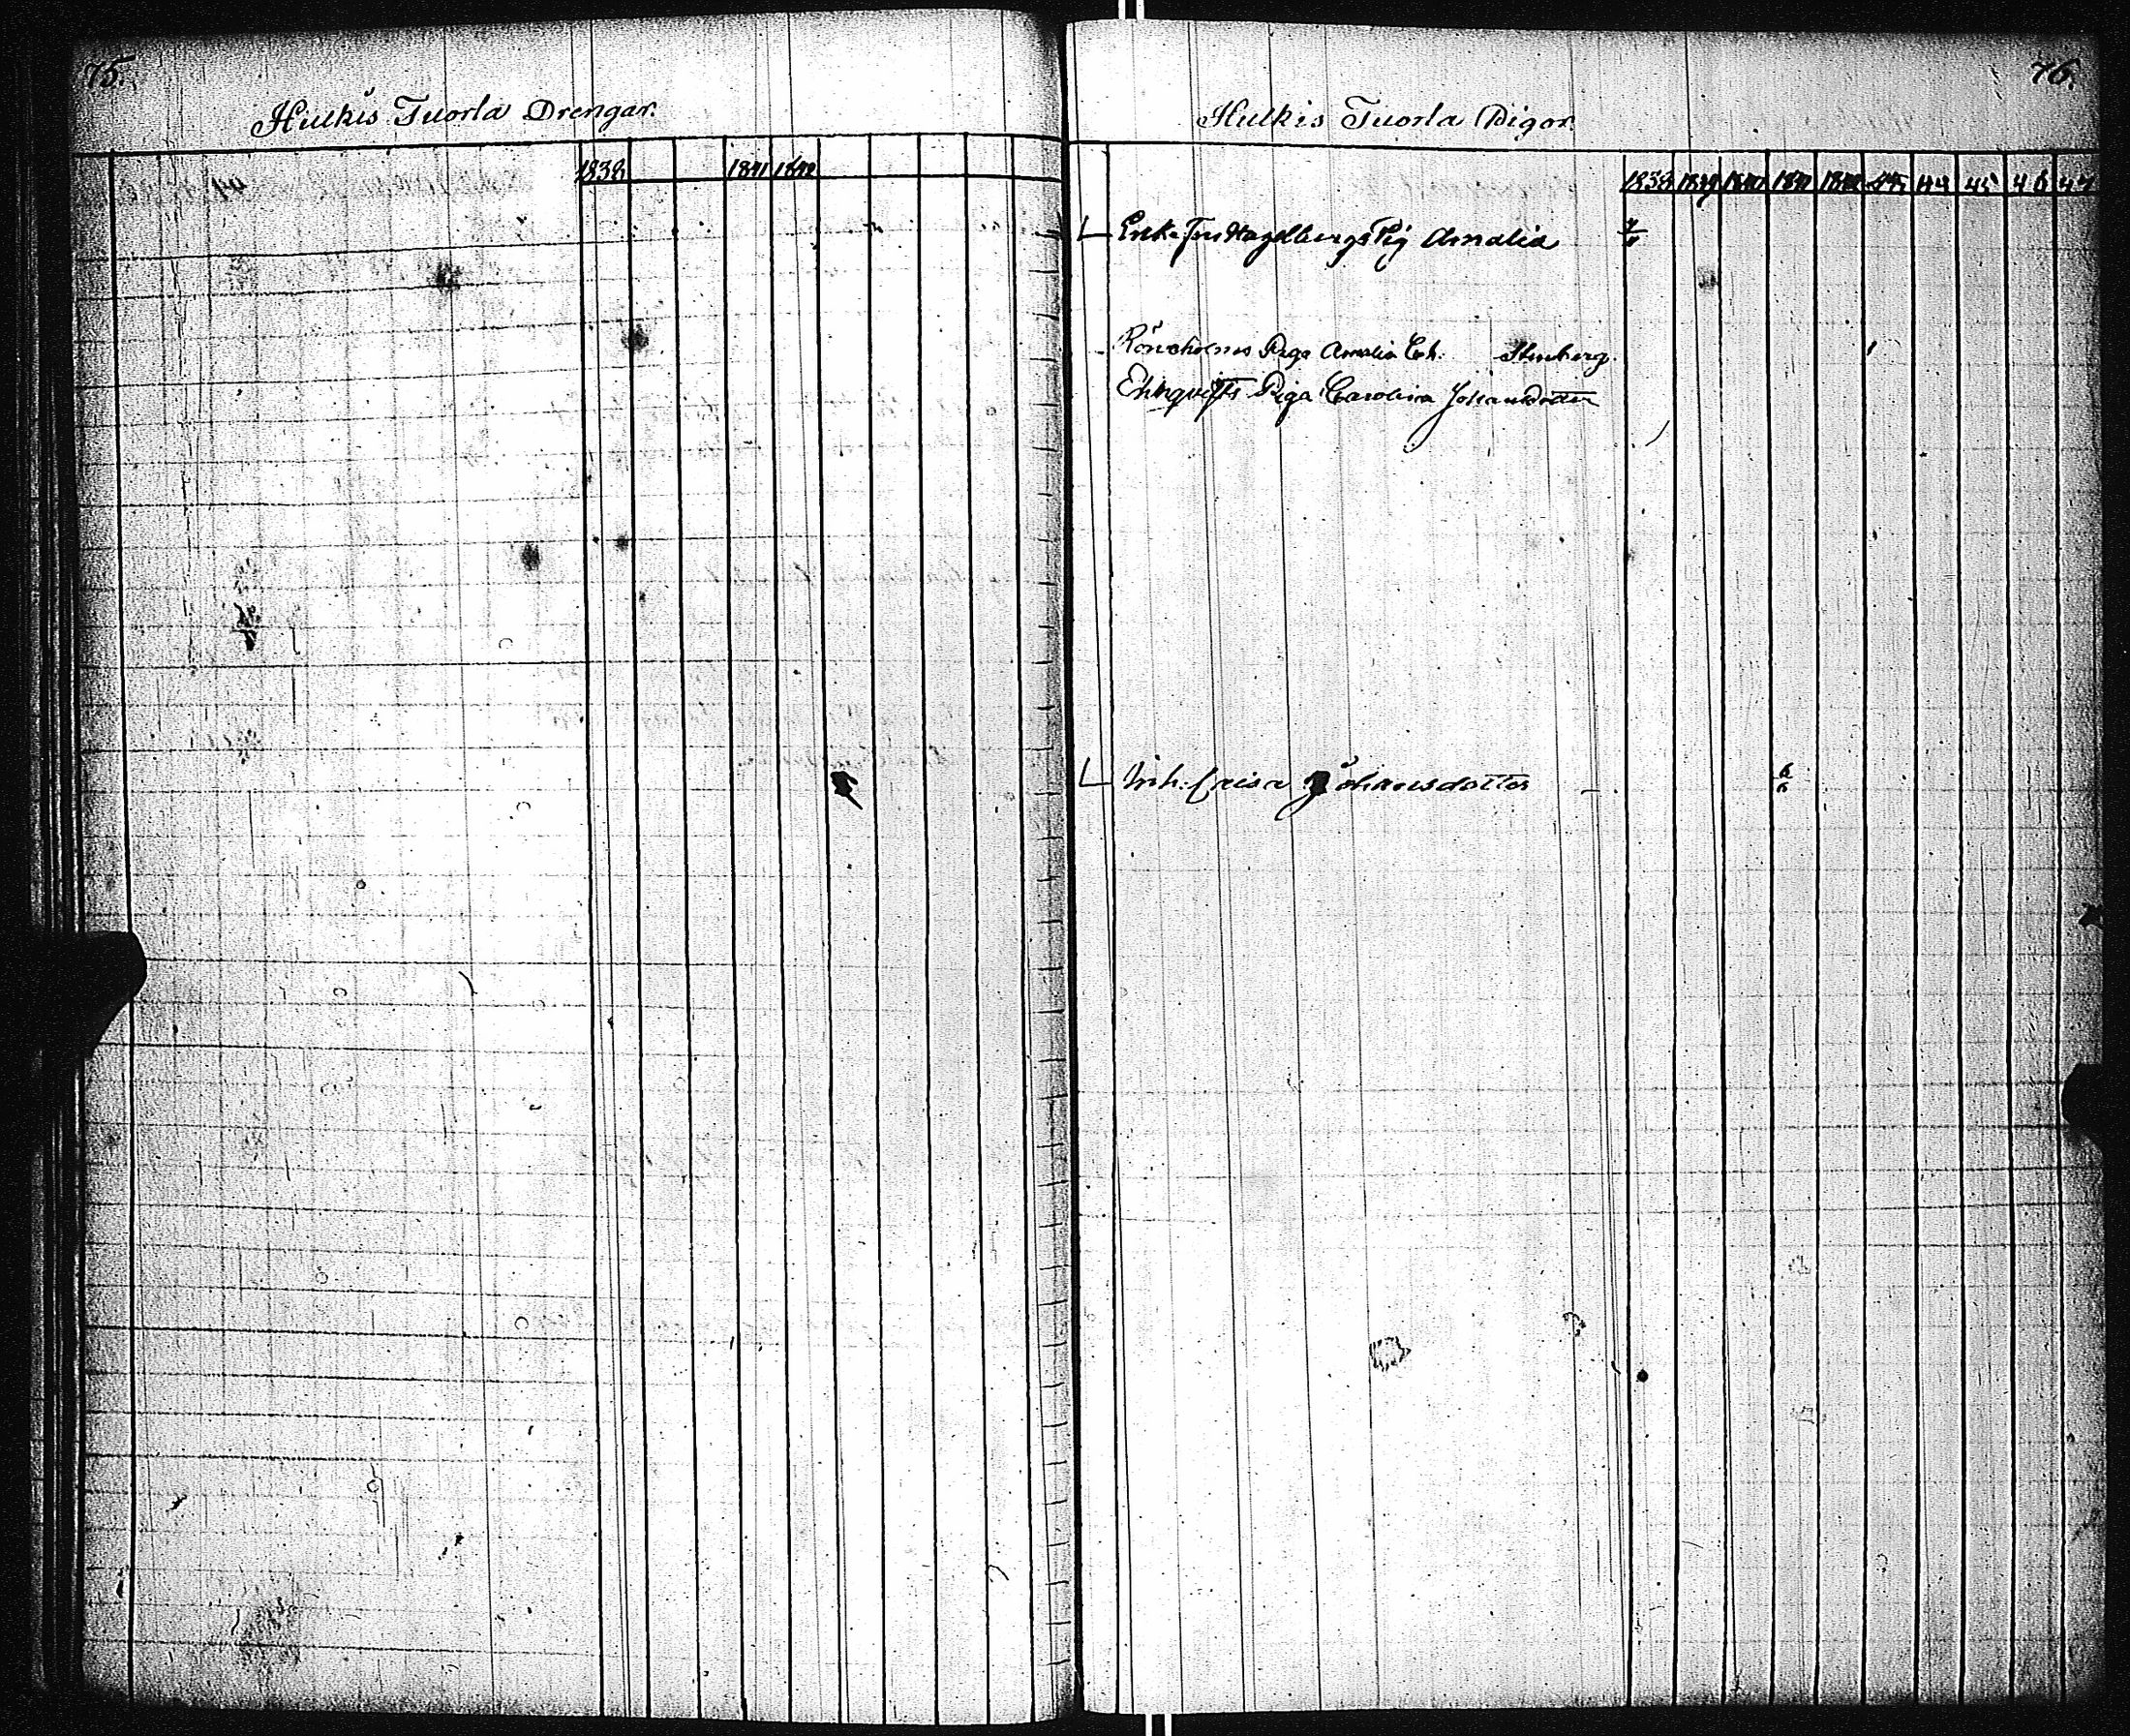 75.
Hulkis Tuorla Drengar.
1838 1841 1842
76.
Hulkis Tuorla Pigor
1838 1839 1840 1841 1842 43 44 45 46 47
Enke Fru Hagelbergs Pig Amalia
Rönnholms Piga Amalia Stenberg.
Piga Carolina Johansdotter
Inh. Caisa Johansdotter